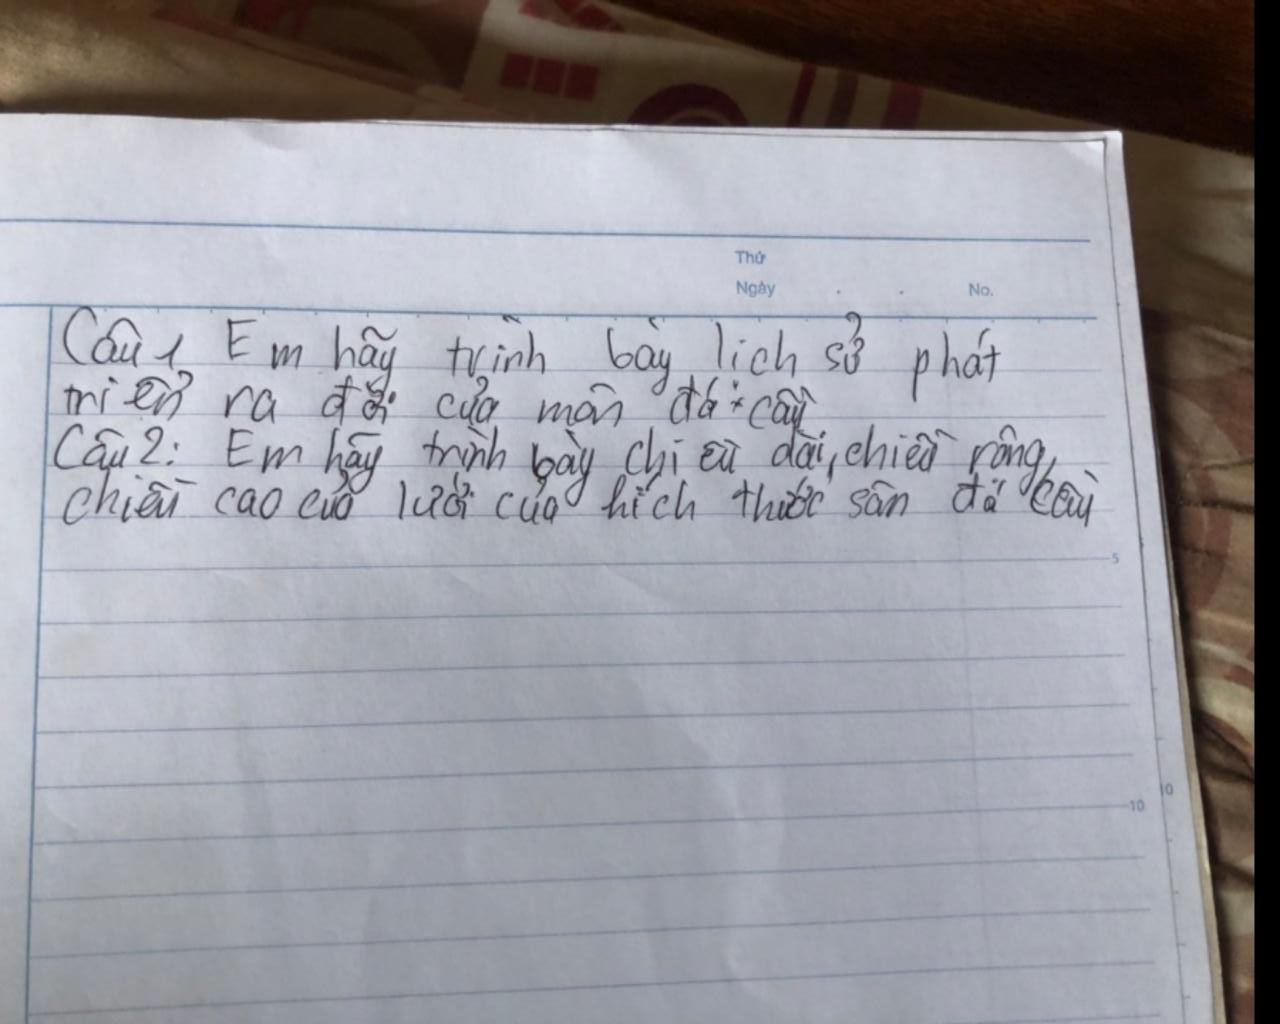 Thứ
Ngày . . No.
Câu 1 Em hãy trình bày lịch sử phát
triển ra đời của môn đá cầu
Câu 2: Em hãy trình bày chiều dài, chiều rộng,
chiều cao của lưới của hích thước sân đá cầu
5
10
0